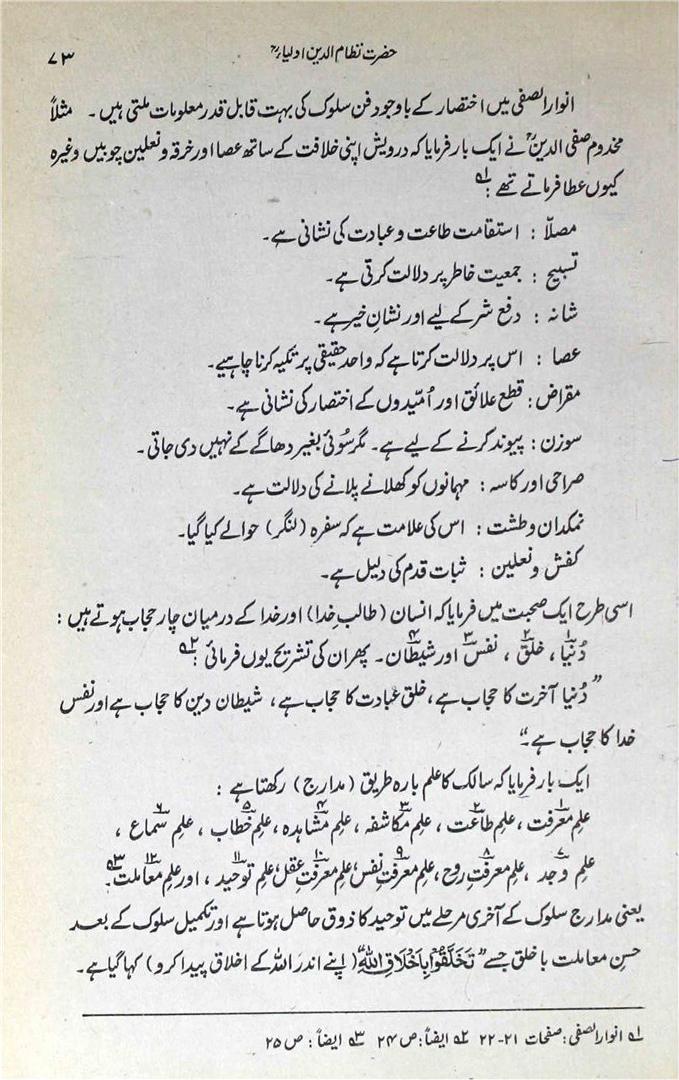 حضرت نظام الدین اولیاءؒ ۷۳
انوار الصفی میں اختصار کے باوجود فن سلوک کی بہت قابل قدر معلومات ملتی ہیں۔ مثلاً
مخدوم صفی الدینؒ نے ایک بار فرمایا کہ درویش اپنی خلافت کے ساتھ عصا اور خرقہ و نعلین چوبیں وغیرہ
کیوں عطا فرماتے تھے :۱؎
مصلّا : استقامت طاعت و عبادت کی نشانی ہے۔
تسبیح : جمعیت خاطر پر دلالت کرتی ہے۔
شانہ : دفع شر کے لیے اور نشان خیر ہے۔
عصا : اس پر دلالت کرتا ہے کہ واحد حقیقی پر تکیہ کرنا چاہیے۔
مقراض : قطع علائق اور اُمّیدوں کے اختصار کی نشانی ہے۔
سوزن : پیوند کرنے کے لیے ہے۔ مگر سُوئی بغیر دھاگے کے نہیں دی جاتی۔
صراحی اور کاسہ : مہمانوں کو کھلانے پلانے کی دلالت ہے۔
نمکدان و طشت : اس کی علامت ہے کہ سفرہ (لنگر) حوالے کیا گیا۔
کفش و نعلین : ثبات قدم کی دلیل ہے۔
اسی طرح ایک صحبت میں فرمایا کہ انسان (طالب خدا) اور خدا کے درمیان چار حجاب ہوتے ہیں :
۱دُنیا، ۲خلق، ۳نفس اور ۴شیطان۔ پھر ان کی تشریح یوں فرمائی :۲؎
”دُنیا آخرت کا حجاب ہے، خلق عبادت کا حجاب ہے، شیطان دین کا حجاب ہے اور نفس
خدا کا حجاب ہے۔“
ایک بار فرمایا کہ سالک کا علم بارہ طریق (مدارج) رکھتا ہے :
۱علمِ معرفت، ۲علمِ طاعت، ۳علمِ مکاشفہ، ۴علمِ مشاہدہ، ۵علمِ خطاب، ۶علمِ سماع،
۷علمِ وجد، ۸علمِ معرفتِ روح، ۹علمِ معرفتِ نفس، ۱۰علمِ معرفتِ عقل، ۱۱علمِ توحید، اور ۱۲علمِ معاملت۔۳؎
یعنی مدارج سلوک کے آخری مرحلے میں توحید کا ذوق حاصل ہوتا ہے اور تکمیل سلوک کے بعد
حسنِ معاملت با خلق جسے ”تَخَلَّقُوا بِاَخْلَاقِ اللّٰهِ“ (اپنے اندر اللہ کے اخلاق پیدا کرو) کہا گیا ہے۔
۱؎ انوار الصفی : صفحات ۲۱-۲۲ ۲؎ ایضاً : ص ۲۴ ۳؎ ایضاً : ص ۲۵